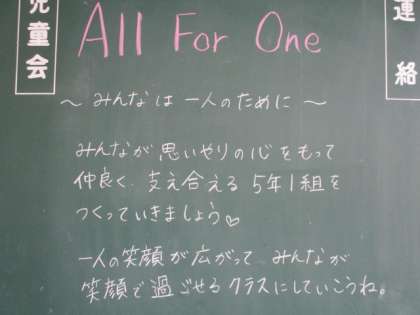 児童会
連絡
All For One
～ みんなは 一人のために ～
みんなが 思いやりの心をもって
仲良く 支え合える 5年1組を
つくっていきましょう♡
一人の笑顔が広がって みんなが
笑顔で過ごせるクラスにしていこうね。